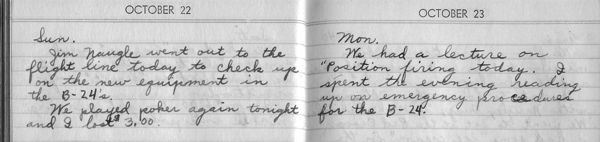 OCTOBER 22
Sun.
Jim Naugle went out to the
flight line today to check up
on the new equipment in
the B-24's.
We played poker again tonight
and I lost $3.00.
OCTOBER 23
Mon.
We had a lecture on
"Position firing today. I
spent the evening reading
up on emergency procedures
for the B-24.